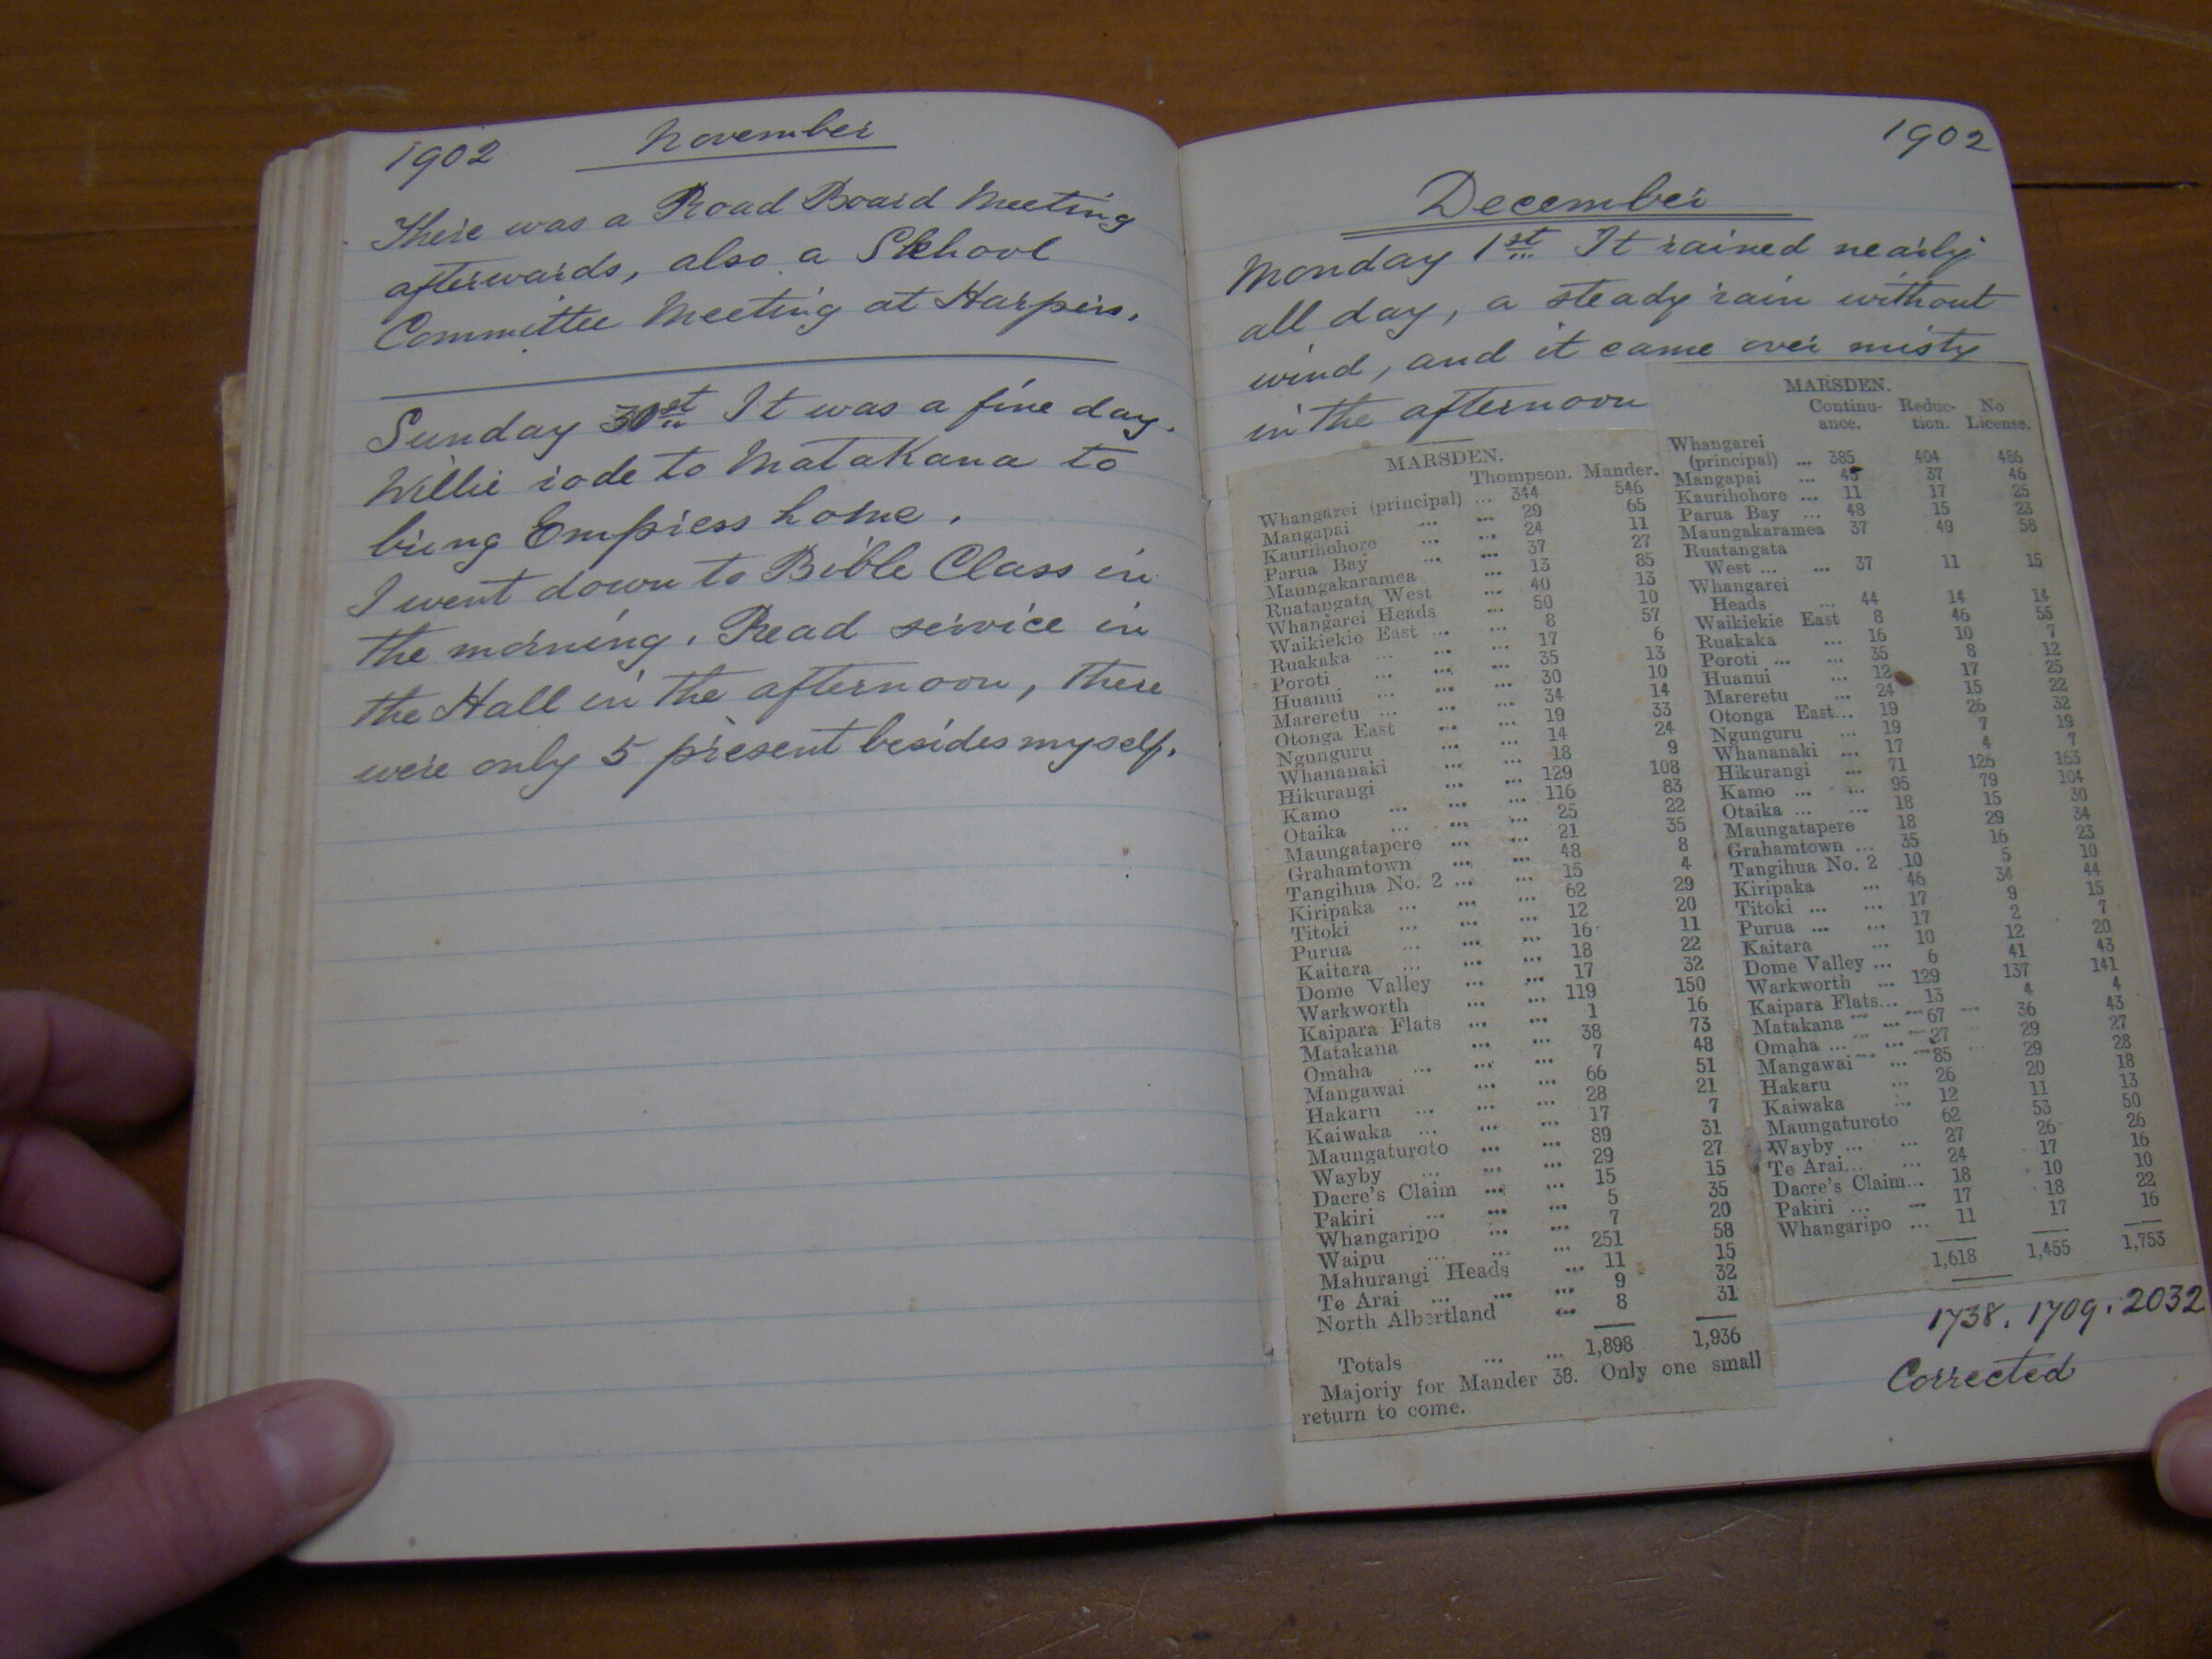 1902 November
There was a Road Board Meeting
afterwards, also a School
Committee Meeting at Harpers.
Sunday 30st It was a fine day.
Willie rode to Matakana to
bring Empress home.
I went down to Bible Class in
the morning. Read service in
the Hall in the afternoon, there
were only 5 present besides myself.
1902
December
Monday 1st It rained nearly
all day, a steady rain without
wind, and it came over misty
in the afternoon
MARSDEN.
Thompson. Mander.
Whangarei (principal) ... 344 546
Mangapai ... ... 29 65
Kaurihohore ... ... 24 11
Parua Bay ... ... 37 27
Maungakaramea ... 13 85
Ruatangata West ... 40 13
Whangarei Heads ... 50 10
Waikiekie East ... ... 8 57
Ruakaka ... ... ... 17 6
Poroti ... ... ... 35 13
Huanui ... ... ... 30 10
Mareretu ... ... ... 34 14
Otonga East ... ... 19 33
Ngunguru ... ... 14 24
Whananaki ... ... 18 9
Hikurangi ... ... 129 108
Kamo ... ... ... 116 83
Otaika ... ... ... 25 22
Maungatapere ... ... 21 35
Grahamtown ... ... 48 8
Tangihua No. 2 ... ... 15 4
Kiripaka ... ... ... 62 29
Titoki ... ... ... 12 20
Purua ... ... ... 16 11
Kaitara ... ... ... 18 22
Dome Valley ... ... 17 32
Warkworth ... ... 119 150
Kaipara Flats ... ... 1 16
Matakana ... ... 38 73
Omaha ... ... ... 7 48
Mangawai ... ... 66 51
Hakaru ... ... ... 28 21
Kaiwaka ... ... ... 17 7
Maungaturoto ... ... 89 31
Wayby ... ... ... 29 27
Dacre's Claim ... ... 15 15
Pakiri ... ... ... 5 35
Whangaripo ... ... 7 20
Waipu ... ... ... 251 58
Mahurangi Heads ... 11 15
Te Arai ... ... ... 9 32
North Albertland ... 8 31
Totals ... ... 1,898 1,936
Majoriy for Mander 38. Only one small
return to come.
MARSDEN.
Continu- Reduc- No
ance. tion. License.
Whangarei
(principal) ... 385 404 486
Mangapai ... 45 37 46
Kaurihohore ... 11 17 25
Parua Bay ... 48 15 23
Maungakaramea 37 49 58
Ruatangata
West ... ... 37 11 15
Whangarei
Heads ... 44 14 14
Waikiekie East 8 46 55
Ruakaka ... 16 10 7
Poroti ... ... 35 8 12
Huanui ... 12 17 25
Mareretu ... 24 15 22
Otonga East... 19 26 32
Ngunguru ... 19 7 19
Whananaki ... 17 4 7
Hikurangi ... 71 126 163
Kamo ... ... 95 79 104
Otaika ... ... 18 15 30
Maungatapere 18 29 34
Grahamtown ... 35 16 23
Tangihua No. 2 10 5 10
Kiripaka ... 46 34 44
Titoki ... ... 17 9 15
Purua ... ... 17 2 7
Kaitara ... 10 12 20
Dome Valley ... 6 41 43
Warkworth ... 129 137 141
Kaipara Flats... 13 4 4
Matakana ... 67 36 43
Omaha ... ... 27 29 27
Mangawai ... 85 29 28
Hakaru ... 26 20 18
Kaiwaka ... 12 11 13
Maungaturoto 62 53 50
Wayby ... ... 27 26 26
Te Arai... ... 24 17 16
Dacre's Claim... 18 10 10
Pakiri ... ... 17 18 22
Whangaripo ... 11 17 16
1,618 1,455 1,753
1738. 1709. 2032
Corrected